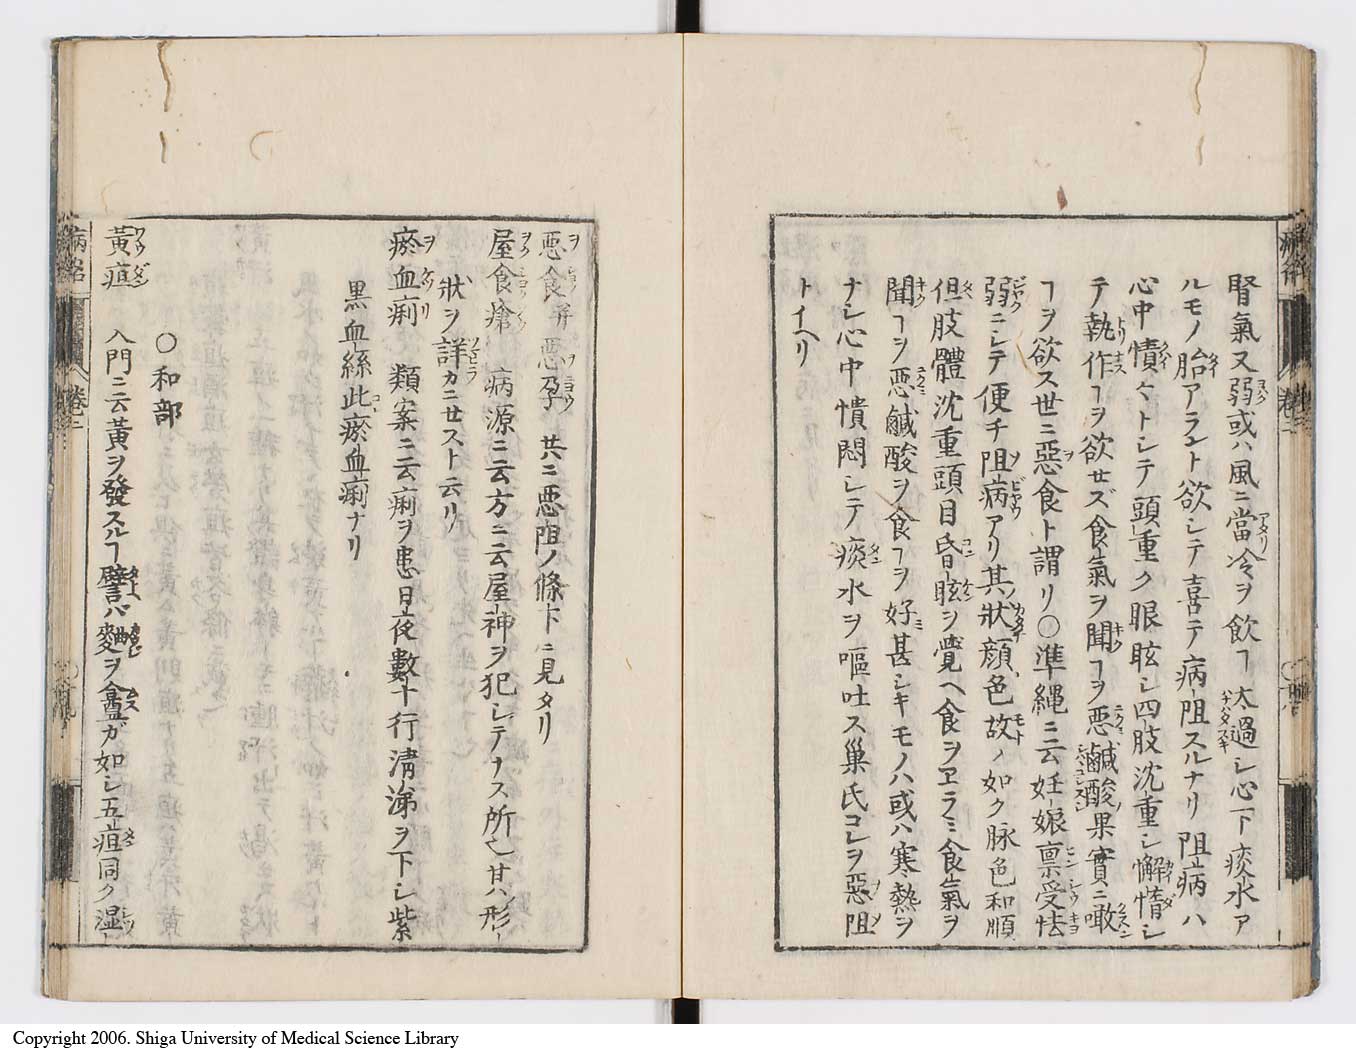 腎氣又弱或ハ風ニ當冷ヲ飲ヿ太過シ心下痰水ア
ルモノ胎アラント欲シテ喜テ病阻スルナリ阻病ハ
心中憒々トシテ頭重ク眼眩シ四肢沈重シ懈惰シ
テ執作ヿヲ欲セズ食氣ヲ聞ヿヲ惡鹹酸果實ニ噉
ヿヲ欲ス世ニ惡食ト謂リ〇準縄ニ云妊娠禀受怯
弱ニシテ便チ阻病アリ其狀顔色故ノ如ク脉色和順
但肢體沈重頭目昏眩ヲ覺ヘ食ヲヱラミ食氣ヲ
聞ヿヲ惡鹹酸ヲ食ヿヲ好甚シキモノハ或ハ寒熱ヲ
ナシ心中憒悶シテ痰水ヲ嘔吐ス巢氏コレヲ惡阻
トイヘリ
惡食并惡孕 共ニ惡阻ノ條下ニ見タリ
屋食瘡 病源ニ云方ニ云屋神ヲ犯シテナス所也甘ハ形
狀ヲ詳カニセスト云リ
瘀血痢 類案ニ云痢ヲ患日夜數十行淸涕ヲ下シ紫
黒血絲此瘀血痢ナリ
〇和部
黃疸 入門ニ云黃ヲ發スルヿ譬バ麴ヲ盦ガ如シ五疸同ク湿
病名
卷二
Copyright 2006. Shiga University of Medical Science Library